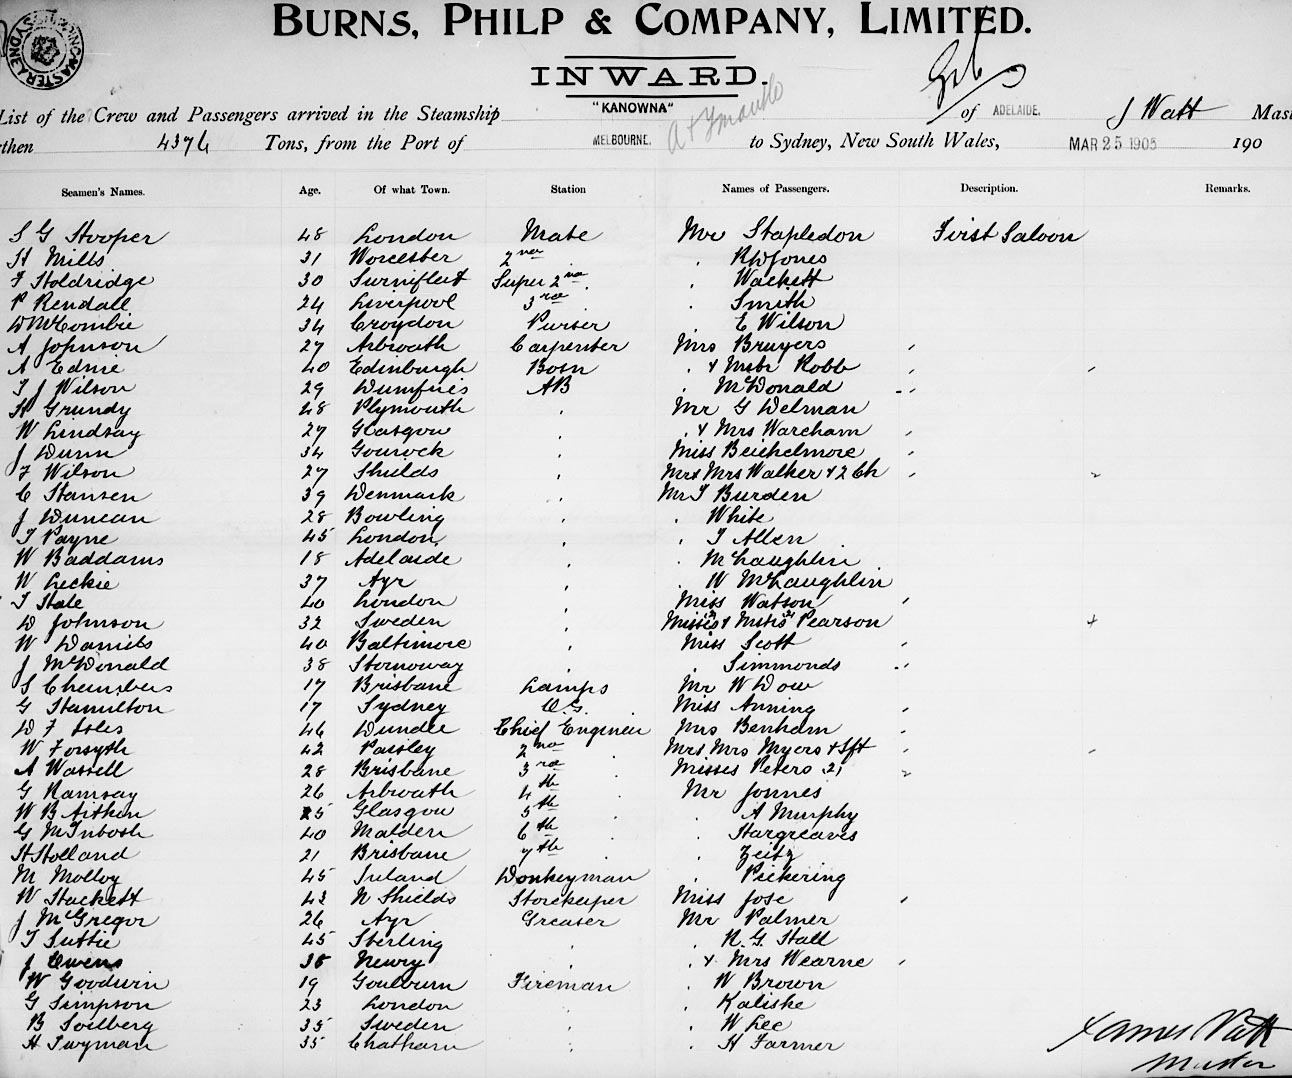 BURNS, PHILP & COMPANY, LIMITED.
INWARD.
List of the Crew and Passengers arrived in the Steamship "KANOWNA" of ADELAIDE. J Watt Mast
then 4376 Tons, from the Port of MELBOURNE. to Sydney, New South Wales, MAR 25 1905 190
Seamen's Names. Age. Of what Town. Station Names of Passengers. Description. Remarks.
S G Hooper 48 London Mate Mr Stapledon First Saloon
H Mills 31 Worcester 2nd " R W Jones
F Holdridge 30 Surnifleet Super 2nd " Wackett
P Rendall 24 Liverpool 3rd " Smith
D McCombie 34 Croydon Purser " E Wilson
A Johnson 27 Arbroath Carpenter Mrs Bruyers "
A Ednie 40 Edinburgh Bosn " & Mstr Robb " "
T J Wilson 29 Dumfries AB " McDonald "
H Grundy 48 Plymouth " Mr G Delman
W Lindsay 27 Glasgow " " & Mrs Wareham "
J Dunn 34 Gourock " Miss Beichelmore "
F Wilson 27 Shields " Mr & Mrs Walker & 2 Ch " "
C Hansen 39 Denmark " Mr T Burden
J Duncan 28 Bowling " " White
T Payne 45 London " " T Allen
W Baddams 18 Adelaide " " McLaughlin
W Leckie 37 Ayr " " W McLaughlin
T Hale 40 London " Miss Watson "
D Johnson 32 Sweden " Misses 2 & Mstrs 2 Pearson 4
W Daniels 40 Baltimore " Miss Scott "
J McDonald 38 Stornoway " " Simmonds "
S Chambers 17 Brisbane Lamps Mr W Dow
G Hamilton 17 Sydney O.S. Miss Anning "
D F Isles 46 Dundee Chief Engineer Mrs Benham "
W Forsyth 42 Paisley 2nd " Mr & Mrs Myers & Inft " "
A Wassell 28 Brisbane 3rd " Misses Peters 2 2
G Ramsay 26 Arbroath 4th " Mr Jonnes
W B Aitken 25 Glasgow 5th " " A Murphy
G McIntosh 40 Malden 6th " " Hargreaves
H Holland 21 Brisbane 7th " " Zeitz
M Molloy 45 Ireland Donkeyman " Pickering
W Hackett 42 N Shields Storekeeper Miss Jose "
J McGregor 26 Ayr Greaser Mr Palmer
T Suttie 45 Sterling " " R. G. Hall
J Owens 38 Newry " " & Mrs Wearne "
W Goodwin 19 Goulburn Fireman " W Brown
G Simpson 23 London " " Kaliske
B Soelberg 35 Sweden " " W Lee
H Twyman 35 Chatham " " H Farmer
James Watt
Master